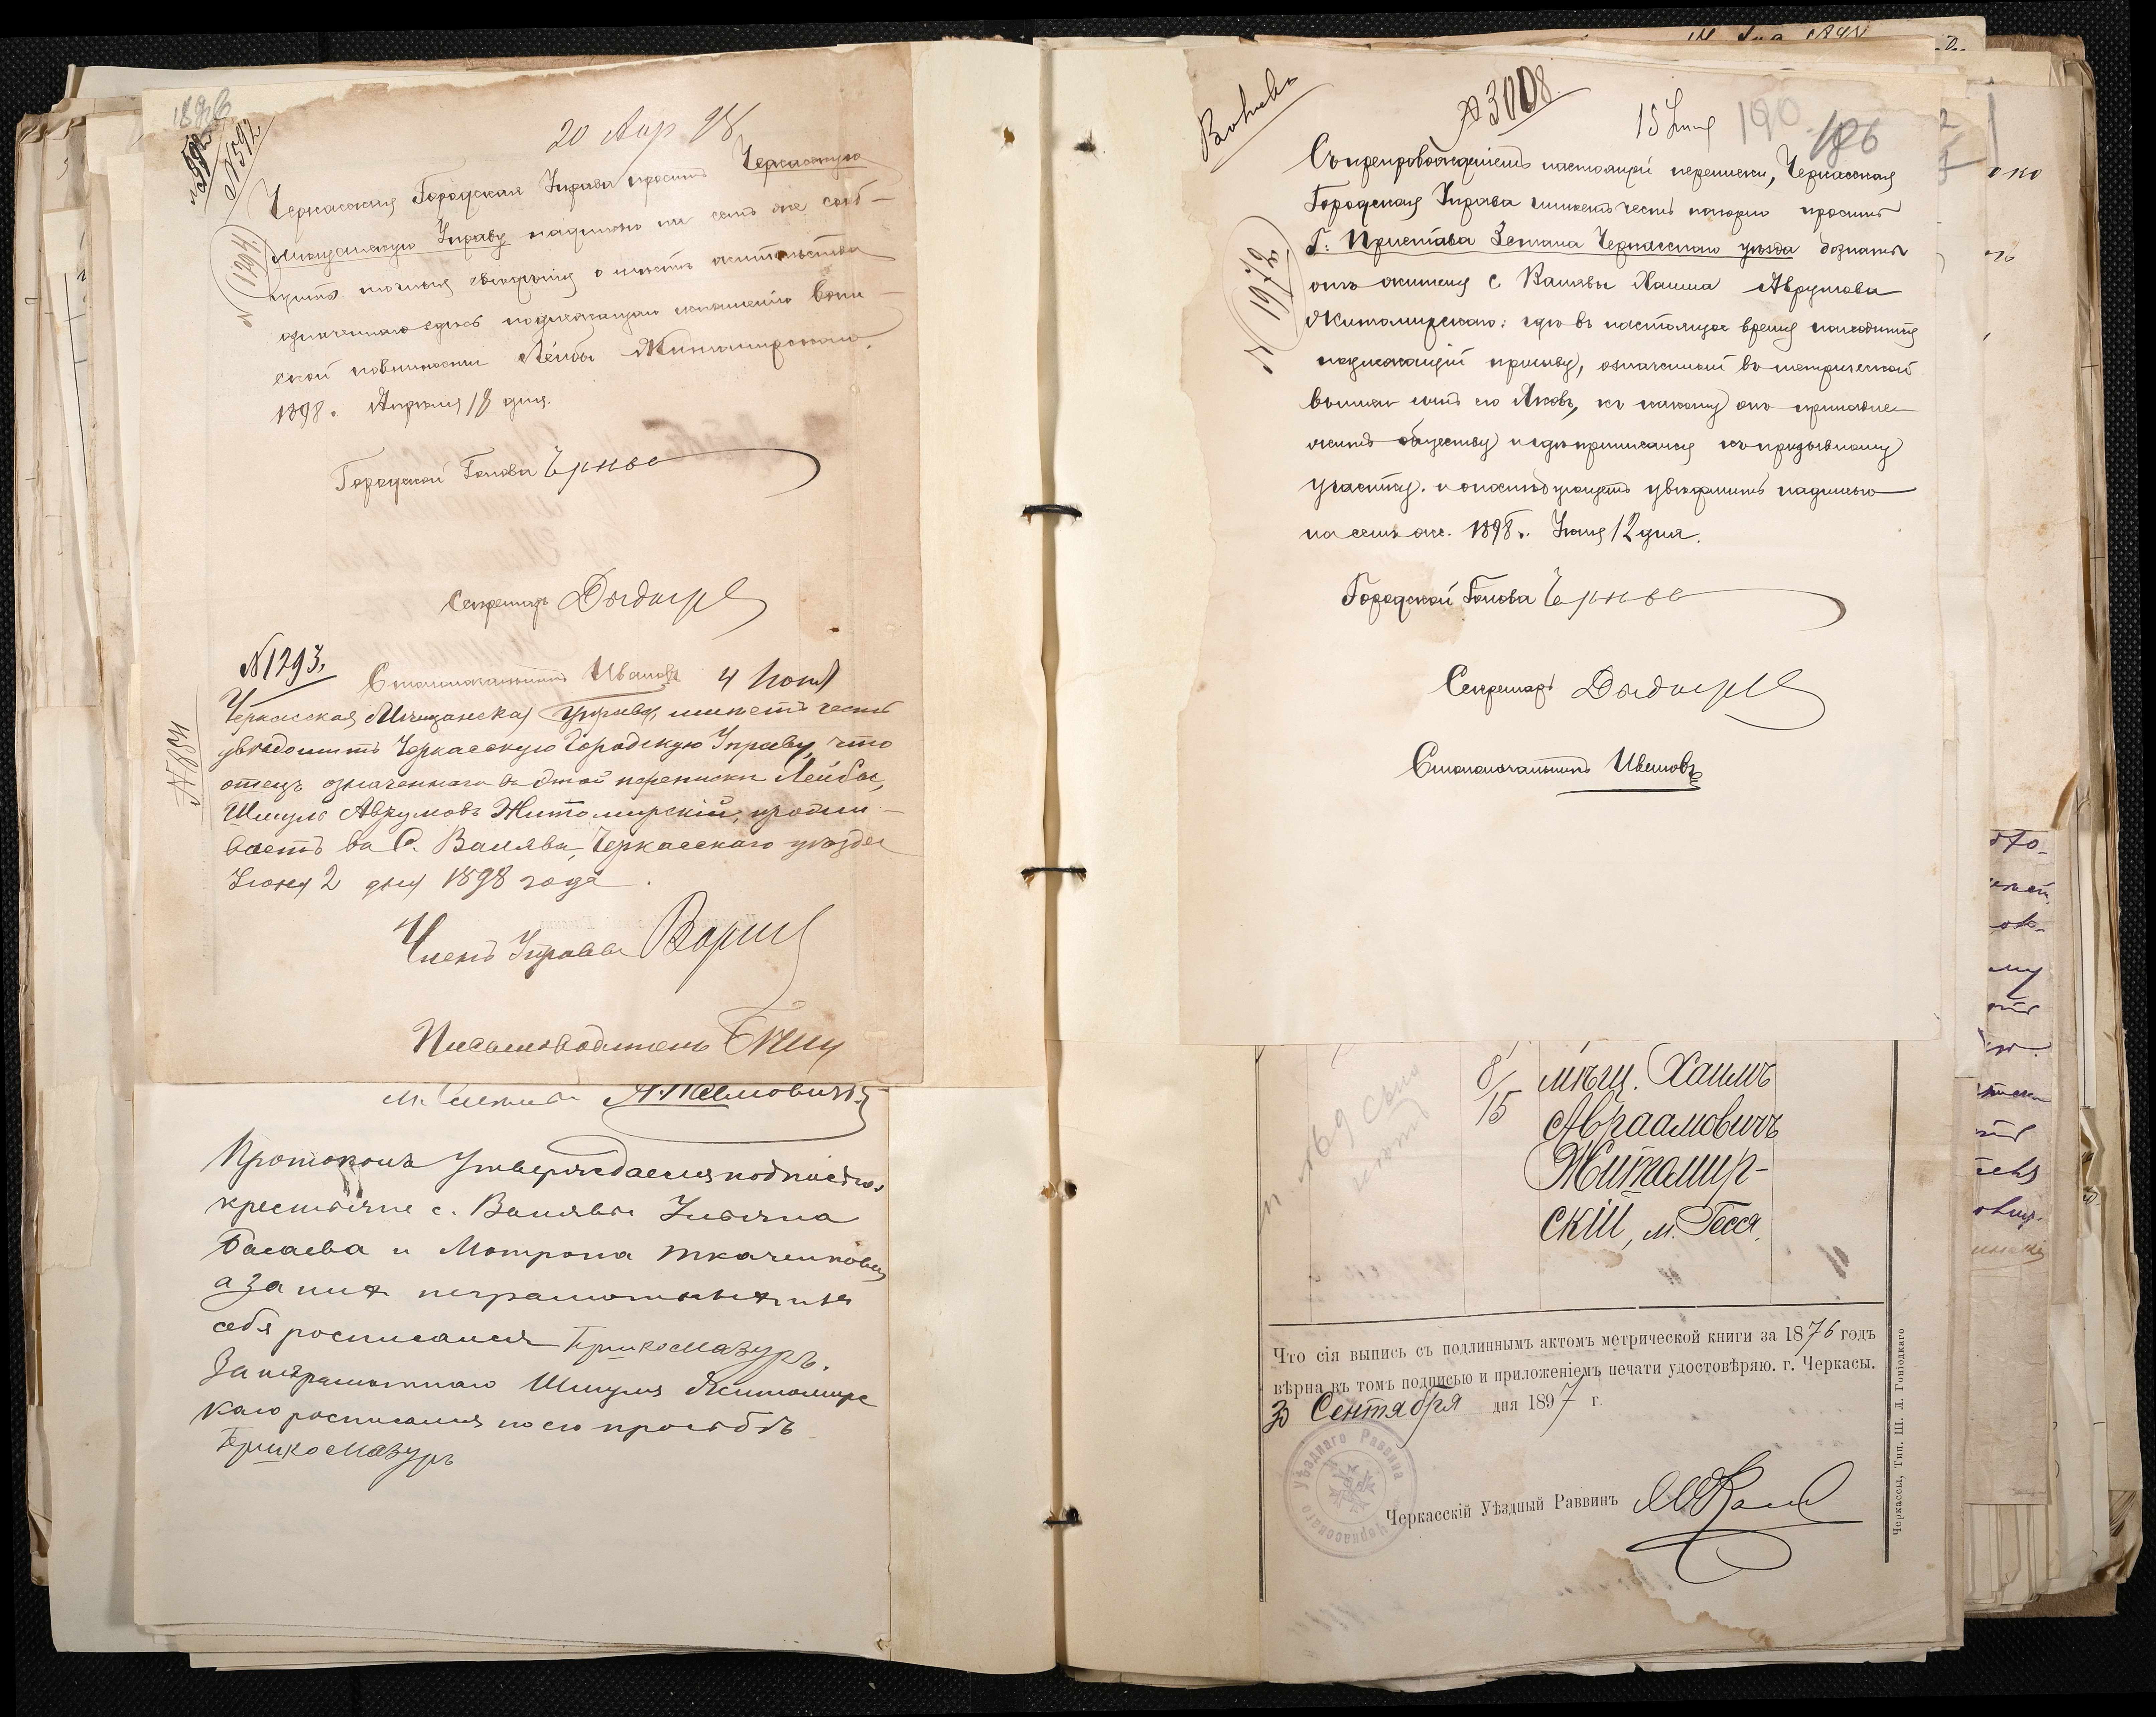 1898
№592
20 Апр 98
Черкасская Городская Управа просит Черкасскую
Мещанскую Управу надписью на семъ же сооб-
щить точныя сведения о месте жительства
означеннаго здесь подлежащаго исполнению воин-
ской повинности Лейбы Житомирскаго.
1898 г. Апреля 18 дня.
№ 1294
Городской Голова
Секретарь
Столоначальникъ Ивановъ
№1293.
4 Июня
Черкасская Мещанская Управа, имеетъ честь
уведомить Черкасскую Городскую Управу, что
отецъ означеннаго въ этой переписки Лейбы,
Шмуль Аврумовъ Житомирскій, прожи-
ваетъ въ С. Валяве, Черкасскаго уезда
Июня 2 дня 1898 года.
Членъ Управы
Письмоводитель
Протоколъ утверждаемъ подписью
крестьяне с. Валявы Ульяна
и Мотрона Ткаченкова
а за них неграмотных и за
себя росписался Гришко Мазуръ.
За неграмотнаго Шмуля Житомирс
каго росписался по его просьбѣ
Гришко Мазуръ
№3008
15 Июня
190
186
Съ препровожденіемъ настоящей переписки, Черкасская
Городская Управа имеетъ честь покорно просить
Г. Пристава 2 стана Черкасскаго уезда дознать
отъ жителя с. Валявы Хаима Аврумова
Житомирскаго: где въ настоящее время находится
подлежащій призыву, означенный въ метрической
выписи сынъ его Яковъ, къ какому онъ принадле-
житъ обществу и где приписался къ призывному
участку. и о последующемъ уведомить надписью
на семъ же. 1898 г. Июня 12 дня.
№ 1972
Городской Голова
Секретарь
Столоначальникъ Ивановъ
8/15
мѣщ. Хаимъ
Авраамовичъ
Житомир-
скій, м. Гесся.
Что сія выпись съ подлиннымъ актомъ метрической книги за 1876 годъ
вѣрна въ томъ подписью и приложеніемъ печати удостовѣряю. г. Черкасы.
30 Сентября дня 1897 г.
Черкасскаго Уѣзднаго Раввина
Черкасскій Уѣздный Раввинъ
Черкассы, Тип. Ш. Л. Гоніодкаго